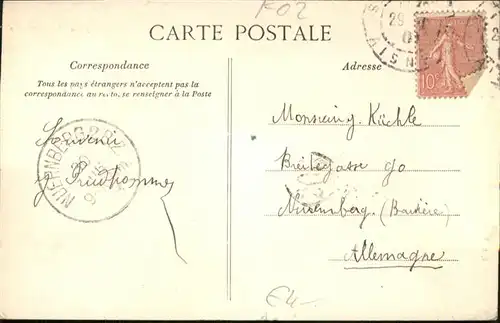 F02
CARTE POSTALE
Correspondance
Adresse
Tous les pays étrangers n'acceptent pas la
correspondance au recto, se renseigner à la Poste
29
10
Souvenir
NUERNBERG 2 B.P.
Prudhomme
Monsieur G. Küchle
Breitegasse 90
Nuremberg. (Bavière)
Allemagne
€4-